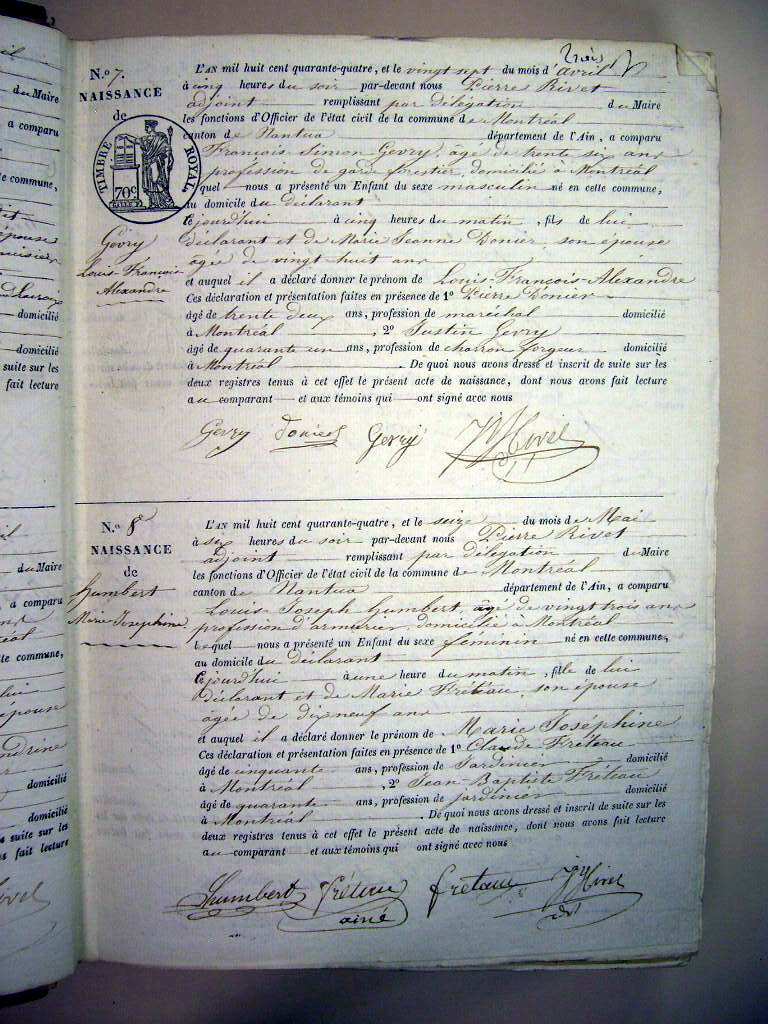 trois
N.º 7.
NAISSANCE
de
TIMBRE ROYAL
70 c
Gevry
Louis-François
Alexandre
L'AN mil huit cent quarante-quatre, et le vingt sept du mois d'avril
à cinq heures du soir par-devant nous Pierre Rivet
adjoint remplissant par délégation du Maire
les fonctions d'Officier de l'état civil de la commune de Montréal
canton de Nantua département de l'Ain, a comparu
François Simon Gevry, âgé de trente six ans
profession de garde forestier, domicilié à Montréal
lequel nous a présenté un Enfant du sexe masculin né en cette commune,
au domicile du déclarant
cejourd'hui à cinq heures du matin, fils de lui
déclarant et de Marie Jeanne Donier, son épouse
âgée de vingt huit ans
et auquel il a déclaré donner le prénom de Louis-François-Alexandre
Ces déclaration et présentation faites en présence de 1º Pierre Donier
âgé de trente deux ans, profession de maréchal domicilié
à Montréal , 2º Justin Gevry
âgé de quarante un ans, profession de charron forgeur domicilié
à Montréal . De quoi nous avons dressé et inscrit de suite sur les
deux registres tenus à cet effet le présent acte de naissance, dont nous avons fait lecture
au comparant et aux témoins qui ont signé avec nous
Gevry Donier Gevry
N.º 8
NAISSANCE
de
humbert
Marie Joséphine
L'AN mil huit cent quarante-quatre, et le seize du mois de Mai
à six heures du soir par-devant nous Pierre Rivet
adjoint remplissant par délégation du Maire
les fonctions d'Officier de l'état civil de la commune de Montréal
canton de Nantua département de l'Ain, a comparu
Louis Joseph humbert, âgé de vingt trois ans
profession d'armurier domicilié à Montréal
lequel nous a présenté un Enfant du sexe féminin né en cette commune,
au domicile du déclarant
cejourd'hui à une heure du matin, fille de lui
déclarant et de Marie Fréteau, son épouse
âgée de dix neuf ans
et auquel il a déclaré donner le prénom de Marie Joséphine
Ces déclaration et présentation faites en présence de 1º Claude Fréteau
âgé de cinquante ans, profession de Jardinier domicilié
à Montréal , 2º Jean Baptiste Fréteau
âgé de quarante ans, profession de jardinier domicilié
à Montréal . De quoi nous avons dressé et inscrit de suite sur les
deux registres tenus à cet effet le présent acte de naissance, dont nous avons fait lecture
au comparant et aux témoins qui ont signé avec nous
humbert Fréteau fretau
ainé
du Maire
a comparu
commune,
épouse
domicilié
domicilié
de suite sur les
fait lecture
du Maire
a comparu
commune,
domicilié
domicilié
suite sur les
fait lecture